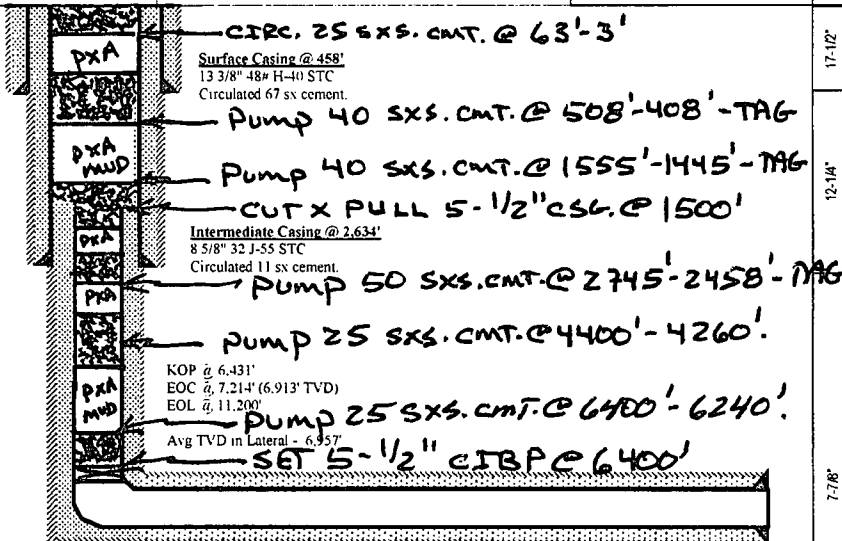 CIRC. 25 SXS. CMT. @ 63'-3'
PXA
Surface Casing @ 458'
13 3/8" 48# H-40 STC
Circulated 67 sx cement.
17-1/2"
PUMP 40 SXS. CMT. @ 508'-408'-TAG
PXA
MUD
PUMP 40 SXS. CMT. @ 1555'-1445'-TAG
12-1/4"
CUT X PULL 5-1/2" CSG. @ 1500'
PXA
Intermediate Casing @ 2,634'
8 5/8" 32 J-55 STC
Circulated 11 sx cement.
PUMP 50 SXS. CMT. @ 2745'-2458'-TAG
PXA
PUMP 25 SXS. CMT. @ 4400'-4260'.
KOP @ 6,431'
EOC @ 7,214' (6,913' TVD)
EOL @ 11,200'
PXA
MUD
PUMP 25 SXS. CMT. @ 6400'-6240'.
Avg TVD in Lateral - 6,957'
SET 5-1/2" CIBP @ 6400'
7-7/8"